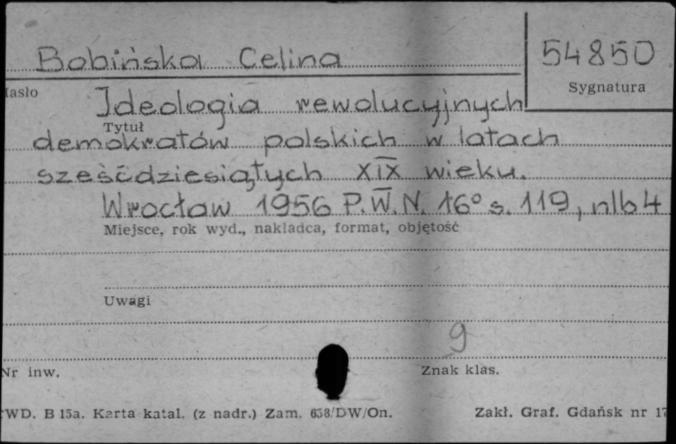 Bobińska Celina
54850
Sygnatura
Ideologia rewolucyjnych
Tytuł
demokratów polskich w latach
sześćdziesiątych XIX wieku.
Wrocław 1956 P.W.N. 16° s. 119, nlb 4
Miejsce, rok wyd., nakładca, format, objętość
Uwagi
9
Nr inw.
Znak klas.
WD. B 15a. Karta katal. (z nadr.) Zam. 638/DW/On.
Zakł. Graf. Gdańsk nr